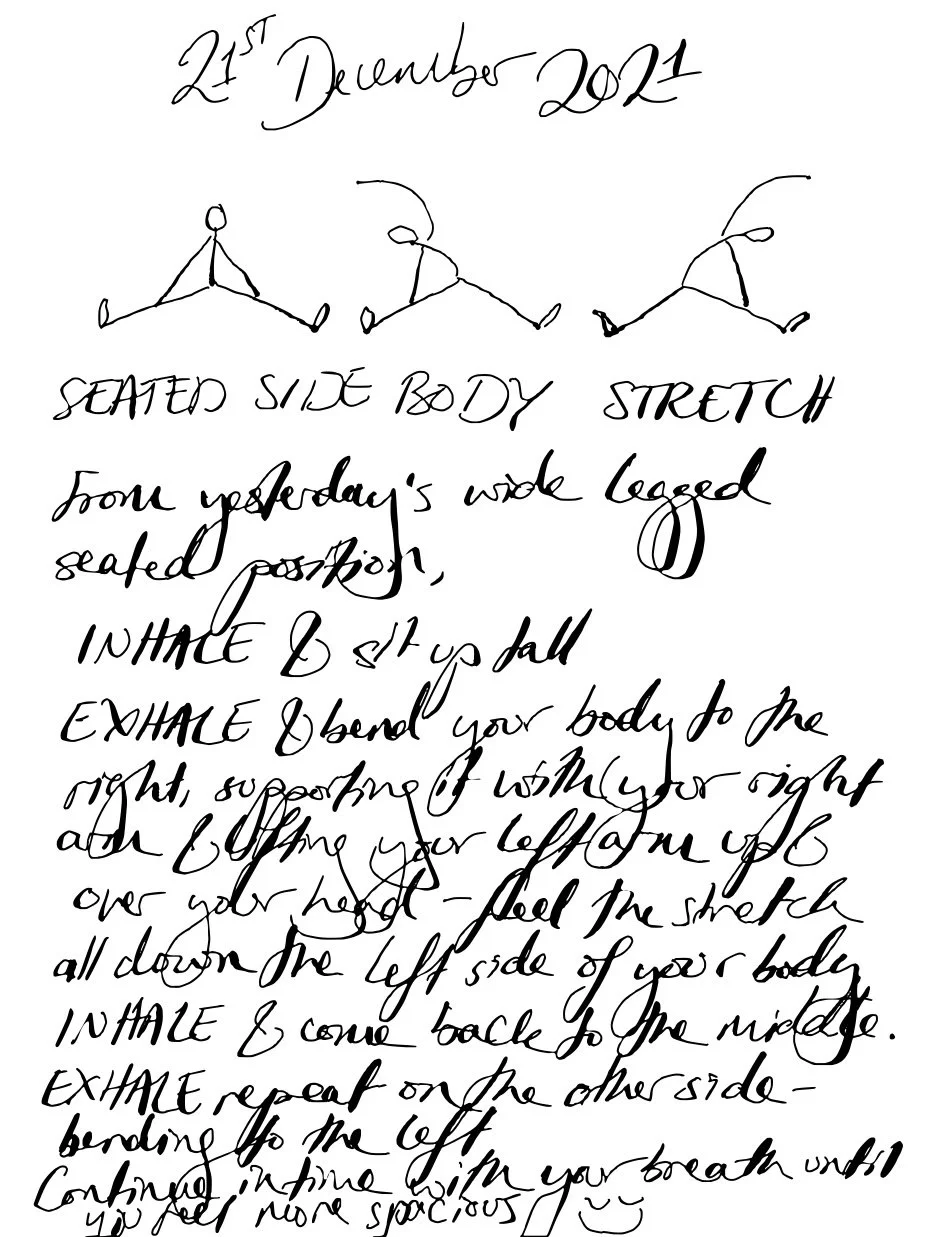 21ST December 2021
SEATED SIDE BODY STRETCH
From yesterday's wide legged
seated position,
INHALE & sit up tall
EXHALE & bend your body to the
right, supporting it with your right
arm & lifting your left arm up &
over your head - feel the stretch
all down the left side of your body
INHALE & come back to the middle.
EXHALE repeat on the other side -
bending to the left
Continue in time with your breath until
you feel more spacious